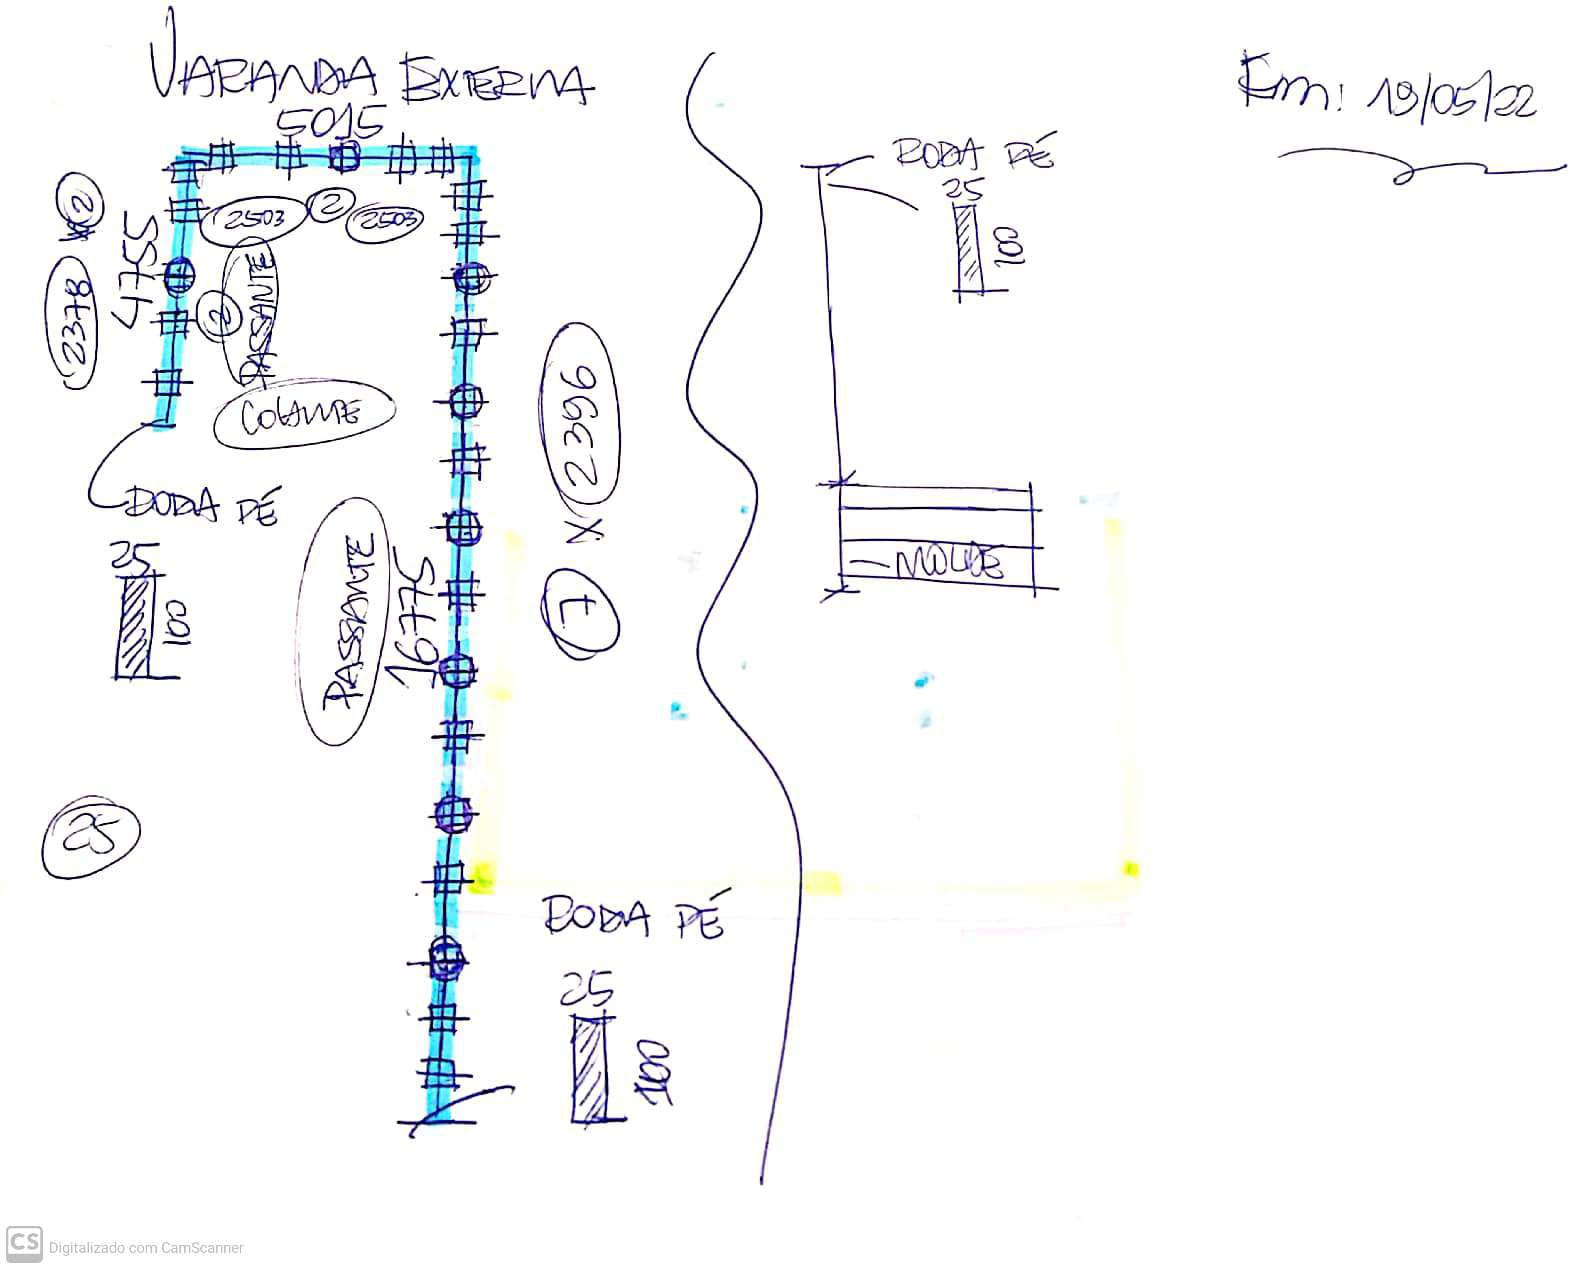 VARANDA EXTERNA
5015
Em: 19/05/22
RODA PÉ
25
100
2
4755
2378
2503
2
2503
2
PASSANTE
COLANTE
RODA PÉ
25
100
PASSANTE
16775
7 X 2396
MOLDE
25
RODA PÉ
25
100
CS Digitalizado com CamScanner